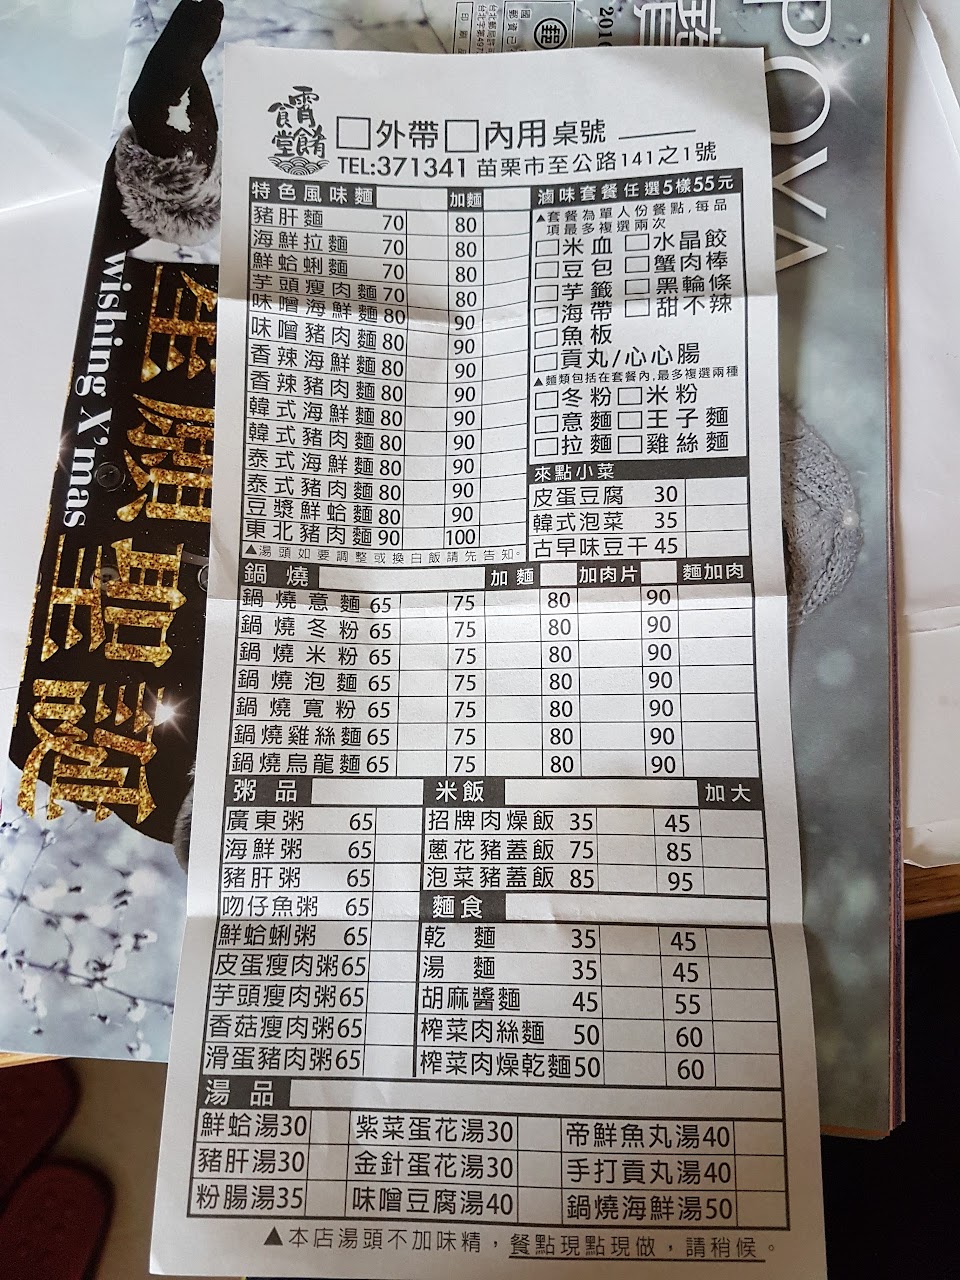 POWA
2010
wishing X'mas
聖誕
宵餚食堂
□外帶□內用桌號
TEL:371341 苗栗市至公路141之1號
特色風味麵 加麵
豬肝麵 70 80
海鮮拉麵 70 80
鮮蛤蜊麵 70 80
芋頭瘦肉麵 70 80
味噌海鮮麵 80 90
味噌豬肉麵 80 90
香辣海鮮麵 80 90
香辣豬肉麵 80 90
韓式海鮮麵 80 90
韓式豬肉麵 80 90
泰式海鮮麵 80 90
泰式豬肉麵 80 90
豆漿鮮蛤麵 80 90
東北豬肉麵 90 100
▲湯頭如要調整或換白飯請先告知。
滷味套餐任選5樣55元
▲套餐為單人份餐點,每品
項最多複選兩次
□米血 □水晶餃
□豆包 □蟹肉棒
□芋籤 □黑輪條
□海帶 □甜不辣
□魚板
□貢丸/心心腸
▲麵類包括在套餐內,最多複選兩種
□冬粉 □米粉
□意麵 □王子麵
□拉麵 □雞絲麵
來點小菜
皮蛋豆腐 30
韓式泡菜 35
古早味豆干 45
鍋燒 加麵 加肉片 麵加肉
鍋燒意麵 65 75 80 90
鍋燒冬粉 65 75 80 90
鍋燒米粉 65 75 80 90
鍋燒泡麵 65 75 80 90
鍋燒寬粉 65 75 80 90
鍋燒雞絲麵 65 75 80 90
鍋燒烏龍麵 65 75 80 90
粥品
廣東粥 65
海鮮粥 65
豬肝粥 65
吻仔魚粥 65
鮮蛤蜊粥 65
皮蛋瘦肉粥65
芋頭瘦肉粥65
香菇瘦肉粥65
滑蛋豬肉粥65
米飯 加大
招牌肉燥飯 35 45
蔥花豬蓋飯 75 85
泡菜豬蓋飯 85 95
麵食
乾麵 35 45
湯麵 35 45
胡麻醬麵 45 55
榨菜肉絲麵 50 60
榨菜肉燥乾麵50 60
湯品
鮮蛤湯30 紫菜蛋花湯30 帝鮮魚丸湯40
豬肝湯30 金針蛋花湯30 手打貢丸湯40
粉腸湯35 味噌豆腐湯40 鍋燒海鮮湯50
▲本店湯頭不加味精，餐點現點現做，請稍候。